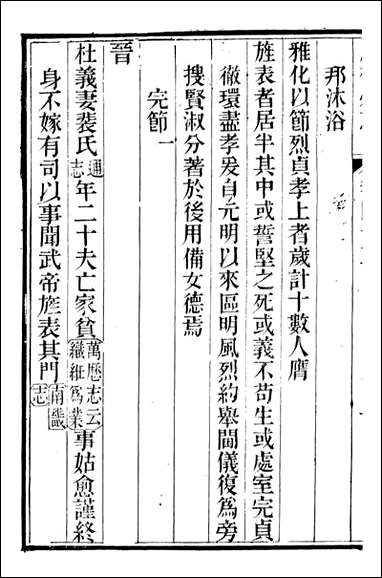 邦沐浴
雅化以節烈貞孝上者歲計十數人膺
旌表者居半其中或誓堅之死或義不苟生或處室完貞
徹環盡孝爰自元明以來區明風烈約舉閫儀復爲旁
搜賢淑分著於後用備女德焉
完節一
晉
杜義妻裴氏通志年二十夫亡家貧萬歷志云織紝爲業事姑愈謹終
身不嫁有司以事聞武帝旌表其門南畿志